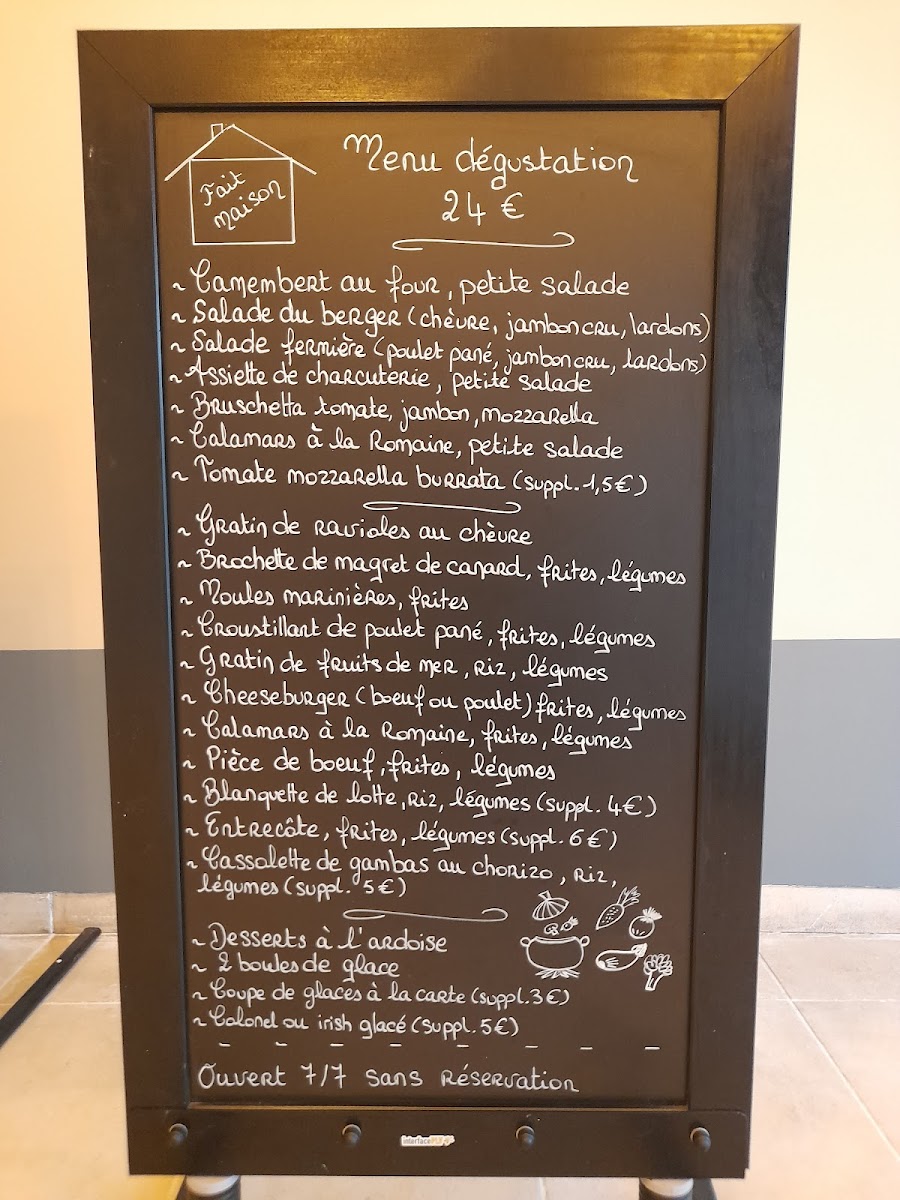 Fait
maison
Menu dégustation
24 €
~ Camembert au four, petite salade
~ Salade du berger (chèvre, jambon cru, lardons)
~ Salade fermière (poulet pané, jambon cru, lardons)
~ Assiette de charcuterie, petite salade
~ Bruschetta tomate, jambon, mozzarella
~ Calamars à la Romaine, petite salade
~ Tomate mozzarella burrata (suppl. 1,5€)
~ Gratin de ravioles au chèvre
~ Brochette de magret de canard, frites, légumes
~ Moules marinières, frites
~ Croustillant de poulet pané, frites, légumes
~ Gratin de fruits de mer, riz, légumes
~ Cheeseburger (boeuf ou poulet) frites, légumes
~ Calamars à la Romaine, frites, légumes
~ Pièce de boeuf, frites, légumes
~ Blanquette de lotte, riz, légumes (suppl. 4€)
~ Entrecôte, frites, légumes (suppl. 6€)
~ Cassolette de gambas au chorizo, riz,
légumes (suppl. 5€)
~ Desserts à l'ardoise
~ 2 boules de glace
~ Coupe de glaces à la carte (suppl. 3€)
~ Colonel ou irish glacé (suppl. 5€)
Ouvert 7/7 sans réservation